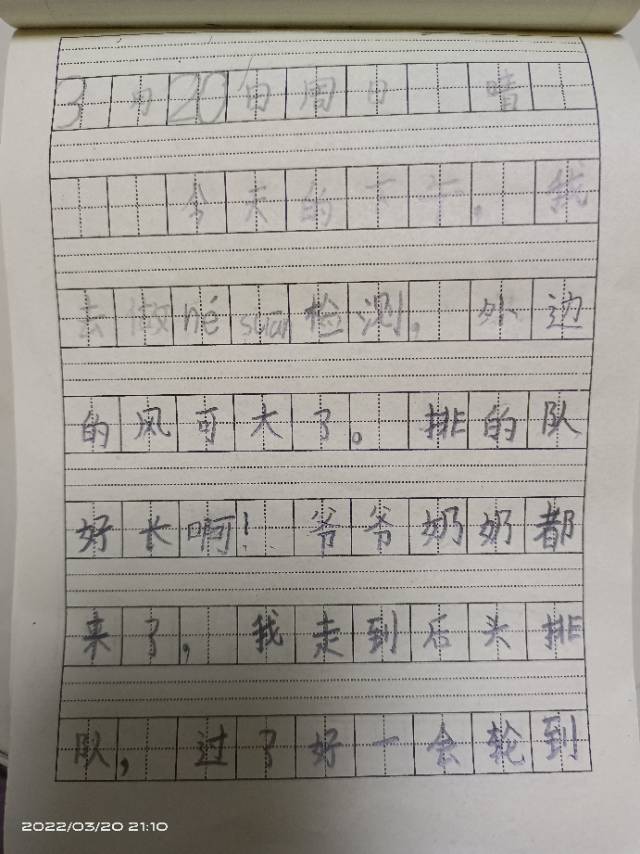 3月20日周日 晴
今天的下午,我
去做hé suān检测,外边
的风可大了。排的队
好长啊!爷爷奶奶都
来了,我走到后头排
队,过了好一会轮到
2022/03/20 21:10